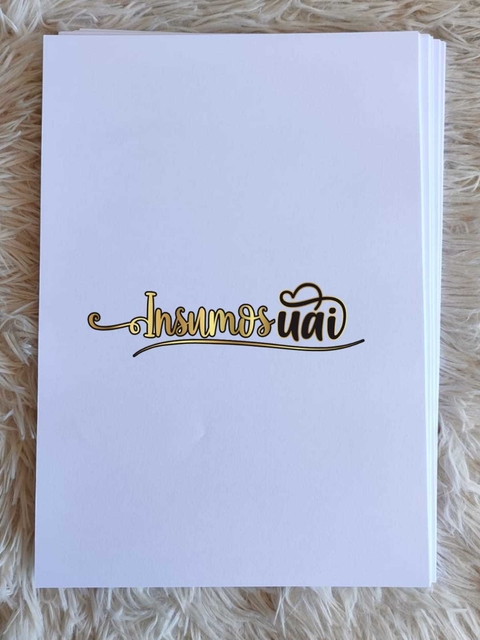 Insumos uai